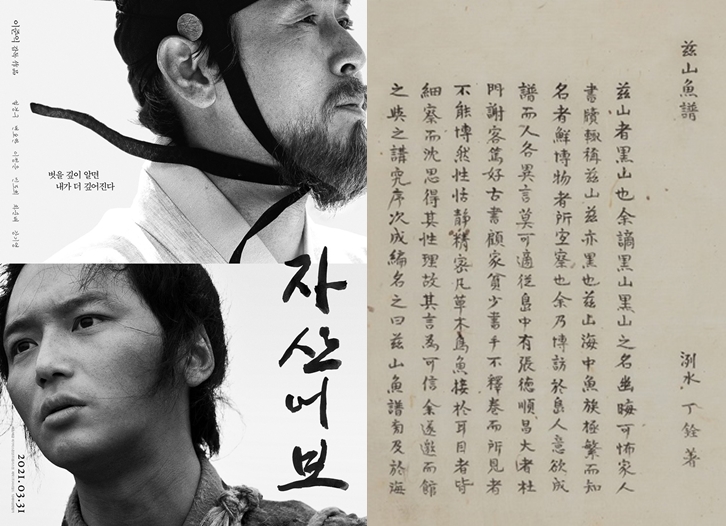 이준익 감독 작품
벗을 깊이 알면
내가 더 깊어진다
자산어보
2021.03.31
茲山魚譜
洌水 丁銓 著
茲山者黑山也余謫黑山黑山之名幽晦可怖家人
書牘輒稱茲山茲亦黑也茲山海中魚族極繁而知
名者鮮博物者所宜察也余乃博訪於島人意欲成
譜而人各異言莫可適從島中有張德順昌大者杜
門謝客篤好古書顧家貧少書手不釋卷而所見者
不能博然性恬靜精密凡草木鳥魚接於耳目者皆
細察而沈思得其性理故其言爲可信余遂邀而館
之與之講究序次成編名之曰茲山魚譜旁及於海